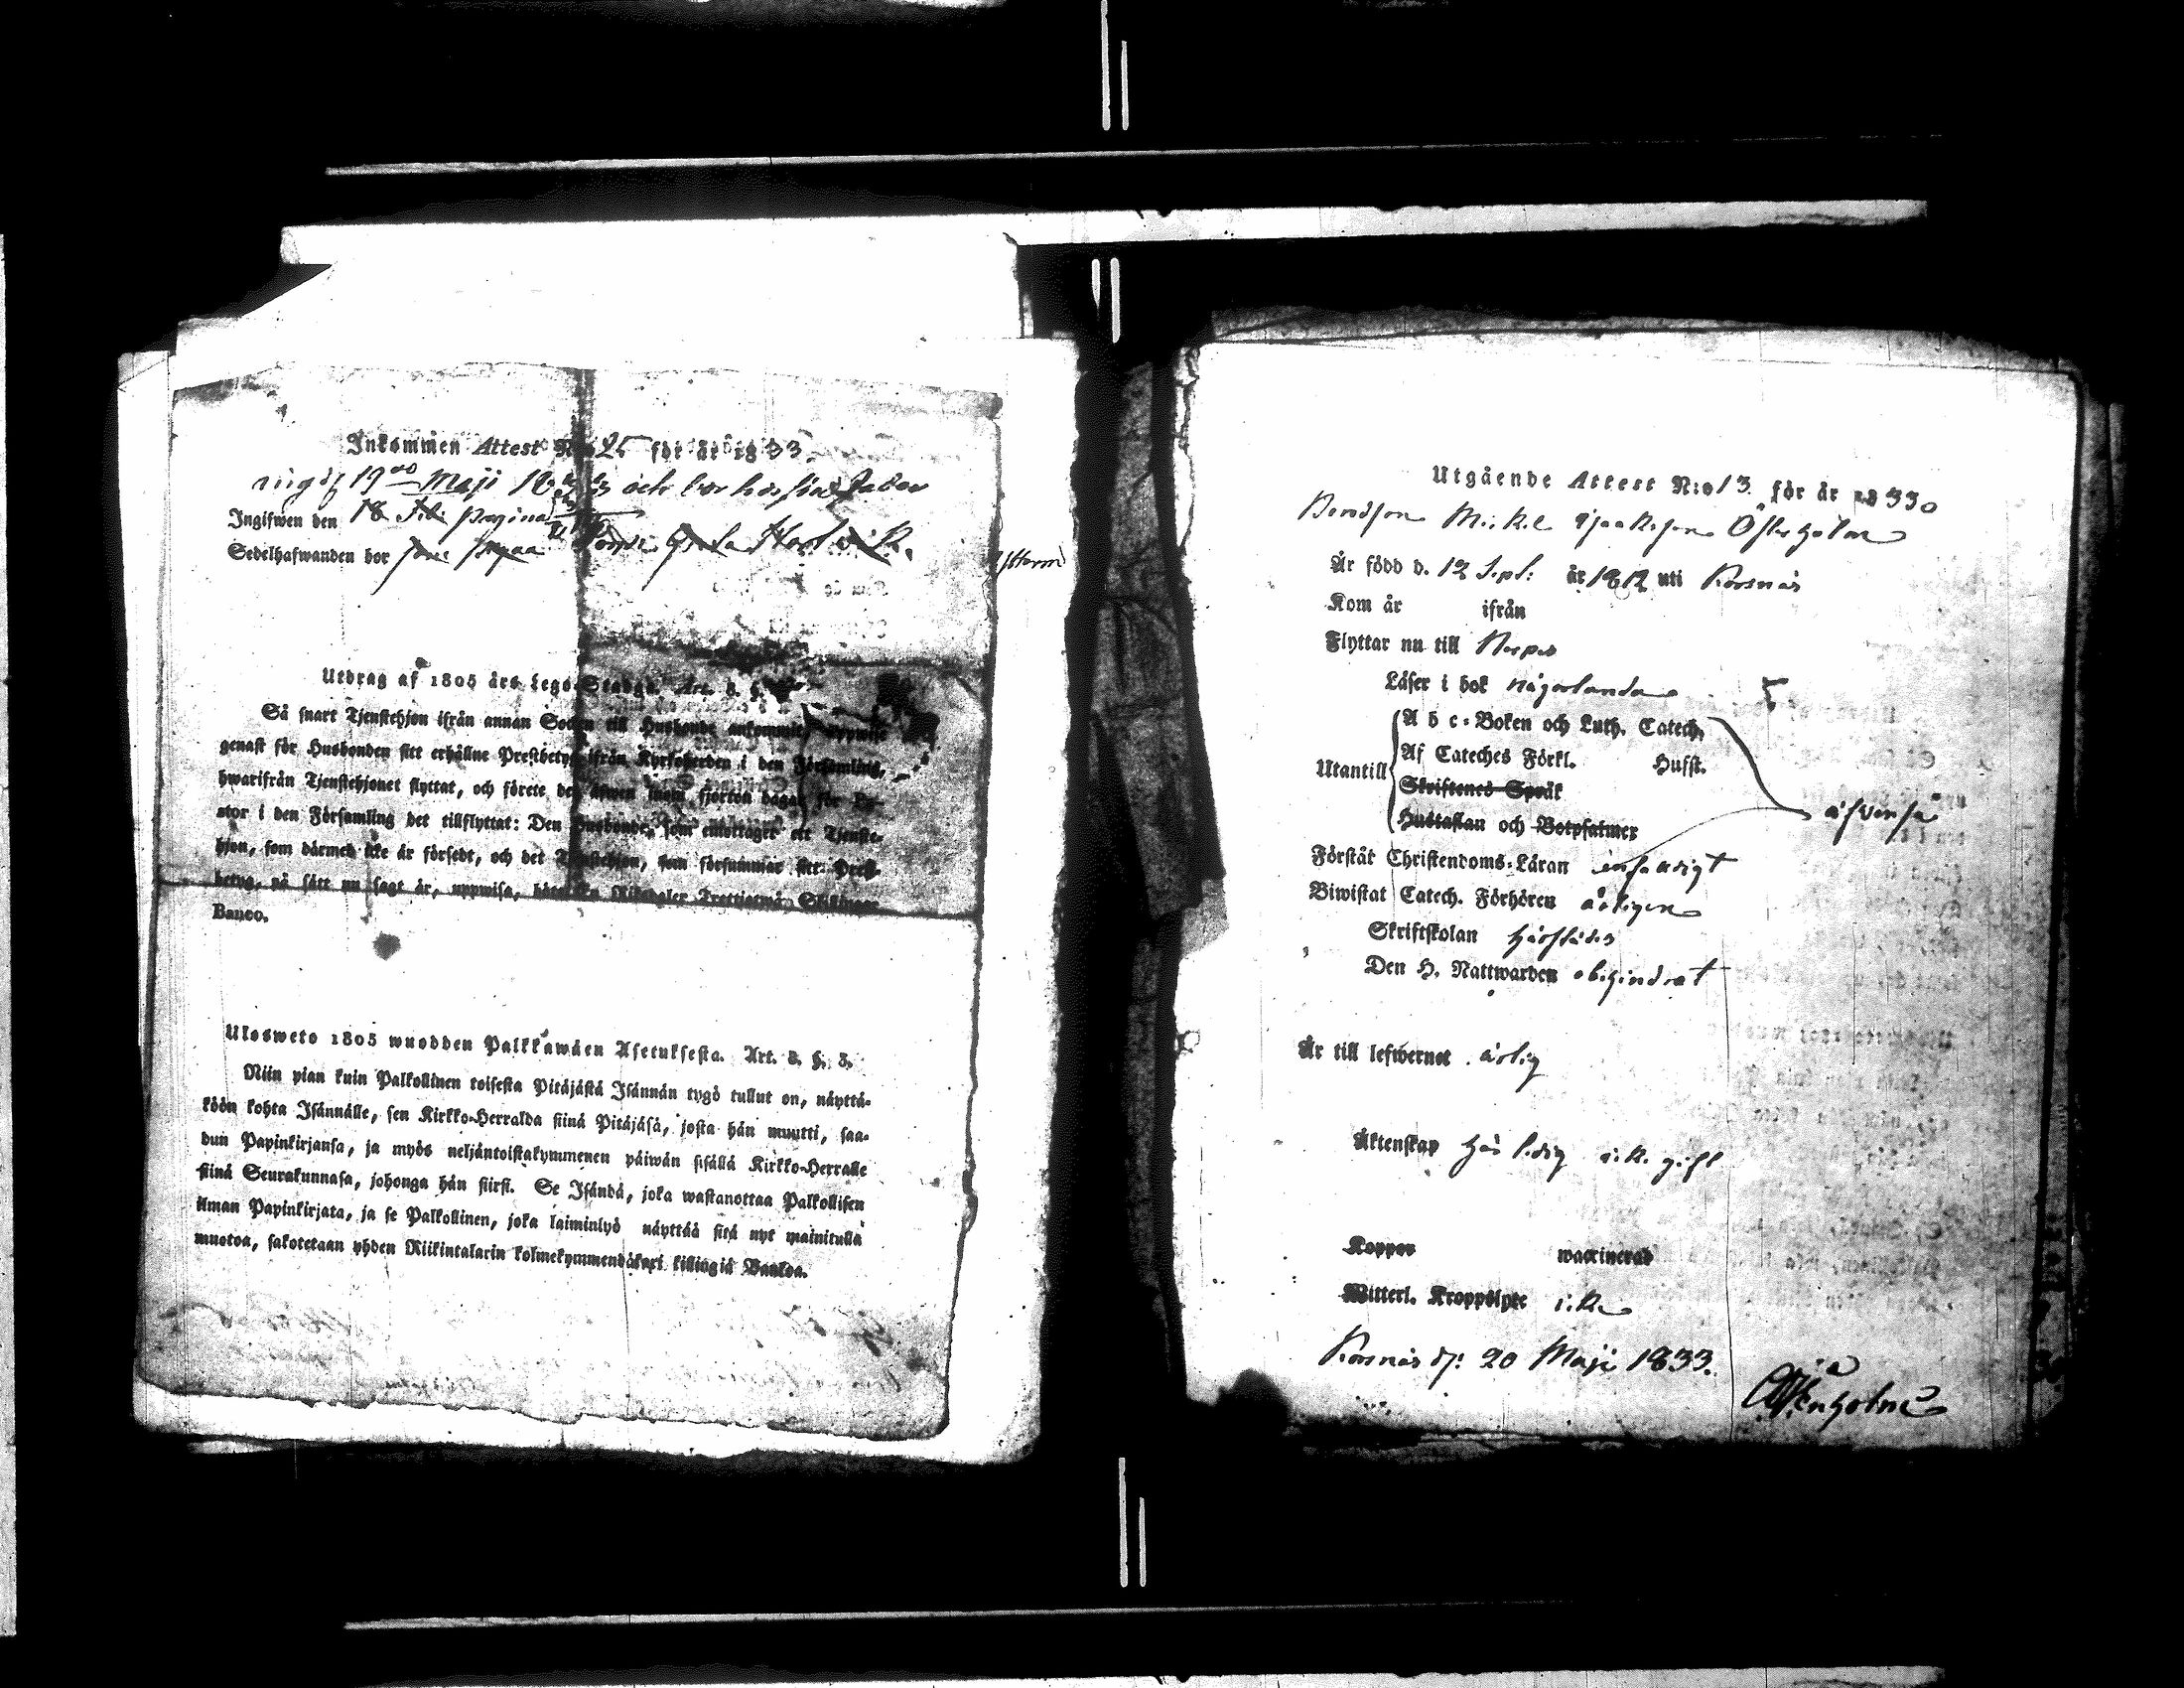 Inkommen Attest N:o 25 för år 1833.
19 Maji 1833 och bor hos sin fader
Ingifwen den 18
Sedelhafwanden bor
Utdrag af 1805 års Lego-Stadga. Art. 8. §.
Så snart Tjenstehjon ifrån annan Socken till Husbonde ankommit, uppwise
genast för Husbonden sitt erhållne Prestbetyg ifrån Kyrkoherden i den Församling,
hwarifrån Tjenstehjonet flyttat, och förete det äfwen inom fjorton dagar för Pa-
stor i den Församling det tillflyttat: Den Husbonde, som emottager ett Tjenste-
hjon, som därmed icke är försedt, och det Tjenstehjon, som försummar sitt Prest-
betyg, på sätt nu sagt är, uppwisa, böte En Riksdaler Trettiotwå Skillingar
Banco.
Ulosweto 1805 wuodden Palkkawäen Asetuksesta. Art. 8. §. 3.
Niin pian kuin Palkollinen toisesta Pitäjästä Isännän tygö tullut on, näyttä-
köön kohta Isännälle, sen Kirkko-Herralda siinä Pitäjäsä, josta hän muutti, saa-
dun Papinkirjansa, ja myös neljäntoistakymmenen päiwän sisällä Kirkko-Herralle
siinä Seurakunnasa, johonga hän siirsi. Se Isändä, joka wastanottaa Palkollisen
ilman Papinkirjata, ja se Palkollinen, joka laiminlyö näyttää sitä nyt mainitulla
muotoa, sakotetaan yhden Riikintalarin kolmekymmendäkaxi killingiä Bankoa.
Utgående Attest N:o 13 för år 1833
Bondson Mickel Isaaksson Österholm
Är född d. 12 Sept: år 1812 uti Korsnäs
Kom år ifrån
Flyttar nu till Nerpes
Läser i bok någorlunda
A b c-Boken och Luth. Catech.
Af Cateches Förkl. Husst.
Utantill
Skriftenes Språk
Hustaflan och Botpsalmer
äfvenså
Förstår Christendoms-Läran enfaldigt
Biwistat Catech. Förhören årligen
Skriftskolan härstädes
Den H. Nattwarden obehindrat
Är till lefwernet ärlig
Äktenskap här ledig
Koppor waccinerad
Witterl. Kroppslyte icke
Korsnäs d: 20 Maji 1833.